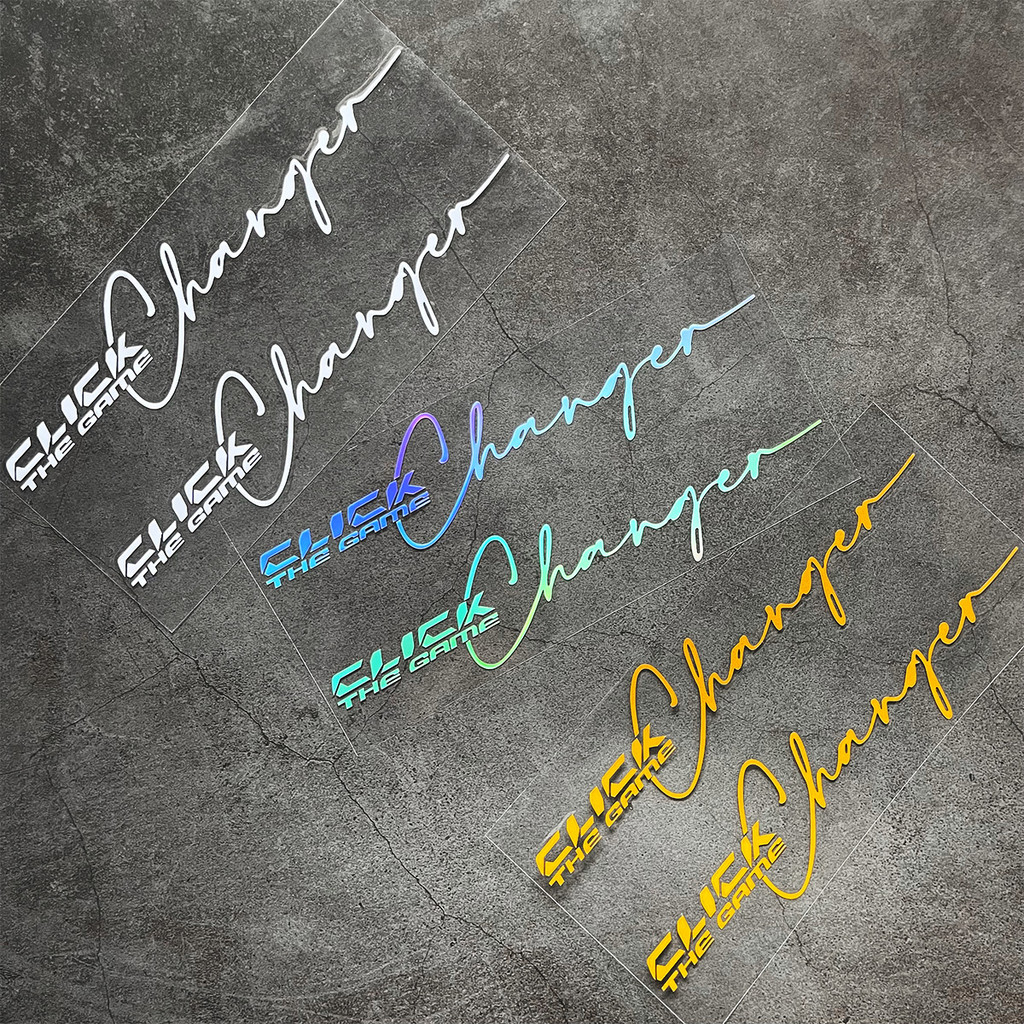 CLICK Changer
THE GAME
CLICK Changer
THE GAME
CLICK Changer
THE GAME
CLICK Changer
THE GAME
CLICK Changer
THE GAME
CLICK Changer
THE GAME